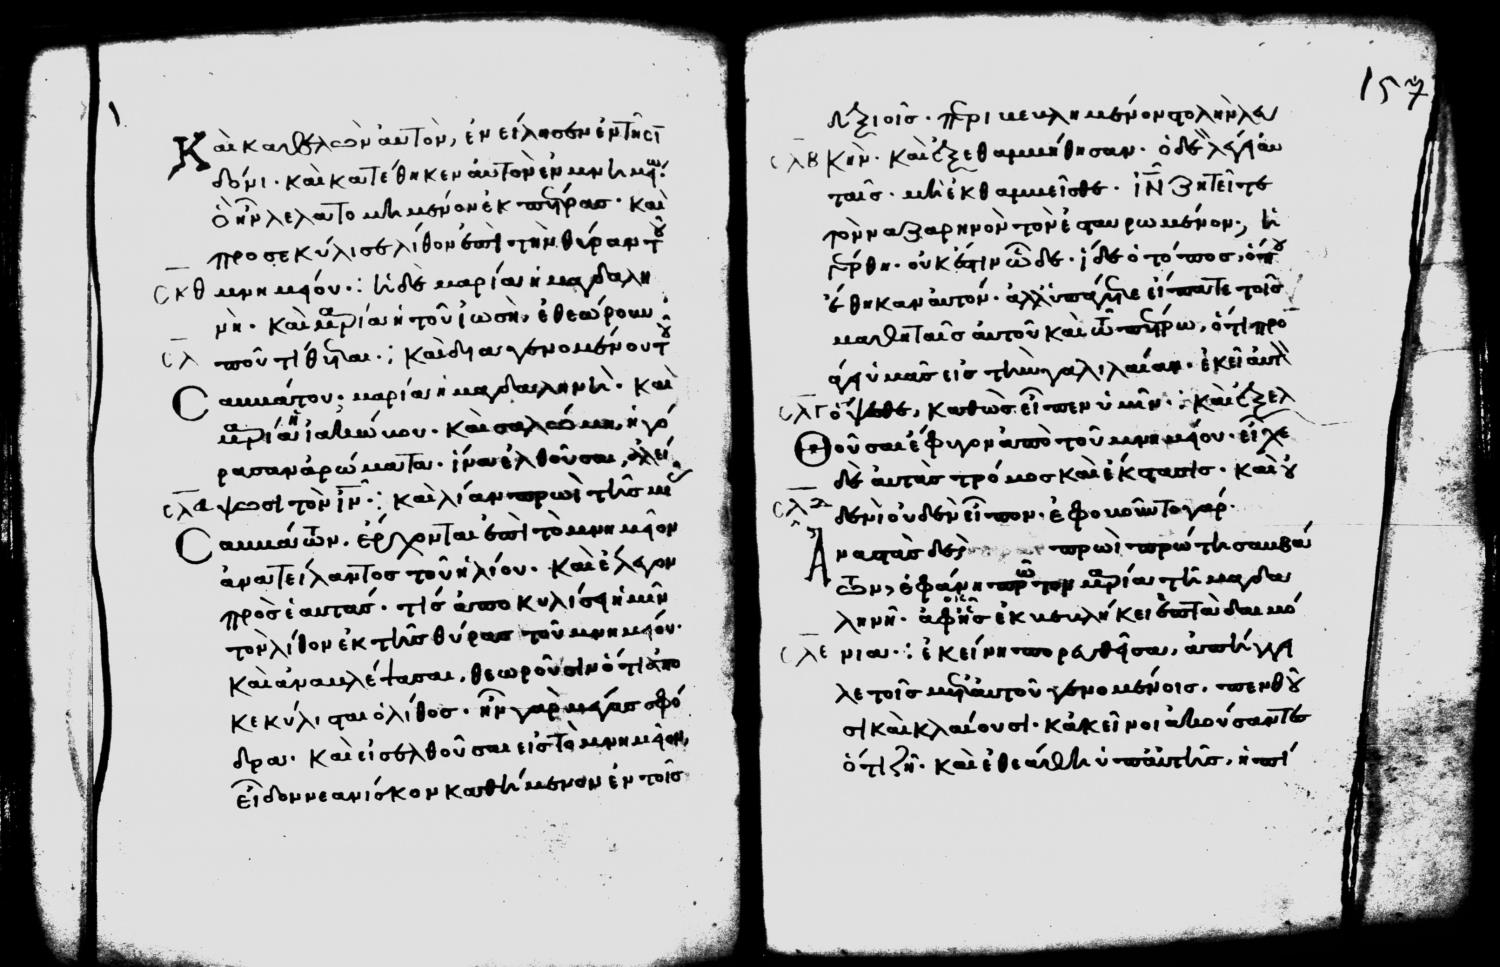 Καὶ καθελὼν αὐτὸν, ἐνείλησεν ἐν τῆ σι
δόνι· καὶ κατέθηκεν αὐτὸν ἐν μνημείω·
ὃ ἦν λελατομημένον ἐκ πέτρας· καὶ
προσεκύλισε λίθον ἐπὶ τὴν θύραν τοῦ
σκθ μνημείου·: ἡ δὲ μαρία ἡ μαγδαλη
νὴ· καὶ μαρία ἡ τοῦ ἰωσὴ, ἐθεώρουν
σλ ποῦ τίθεται·: καὶ διαγενομένου τοῦ
Σαββάτου· μαρία ἡ μαγδαληνὴ· καὶ
μαρία ἡ ἰακώβου· καὶ σαλώμη, ἠγό
ρασαν ἀρώματα· ἵνα ἐλθοῦσαι, ἀλεί
σλα ψωσι τὸν ἰν·: καὶ λίαν πρωῒ τῆς μι
Σαββάτων, ἔρχονται ἐπὶ τὸ μνημεῖον
ἀνατείλαντος τοῦ ἡλίου· καὶ ἔλεγον
πρὸς ἑαυτάς· τίς ἀποκυλίσει ἡμῖν
τὸν λίθον ἐκ τῆς θύρας τοῦ μνημείου·
καὶ ἀναβλέψασαι, θεωροῦσιν ὅτι ἀπο
κεκύλισται ὁ λίθος· ἦν γὰρ μέγας σφό
δρα· καὶ εἰσελθοῦσαι εἰς τὸ μνημεῖον,
εἶδον νεανίσκον καθήμενον ἐν τοῖς
157
δεξιοῖς· περιβεβλημένον στολὴν λευ
σλβ κὴν· καὶ ἐξεθαμβήθησαν· ὁ δὲ λέγει αὐ
ταῖς· μὴ ἐκθαμβεῖσθε· ἰν ζητεῖτε
τὸν ναζαρηνὸν τὸν ἐσταυρωμένον·, ἠ
γέρθη· οὐκ ἔστιν ὧδε· ἴδε ὁ τόπος, ὅπου
ἔθηκαν αὐτόν· ἀλλ' ὑπάγετε εἴπατε τοῖς
μαθηταῖς αὐτοῦ καὶ τῶ πέτρω, ὅτι προ
άγει ὑμᾶς εἰς τὴν γαλιλαίαν· ἐκεῖ αὐτὸν
σλγ ὄψεσθε, καθὼς εἶπεν ὑμῖν·: καὶ ἐξελ
Θοῦσαι ἔφυγον ἀπὸ τοῦ μνημείου· εἶχε
δὲ αὐτὰς τρόμος καὶ ἔκστασις· καὶ οὐ
σλδ δενὶ οὐδὲν εἶπον· ἐφοβοῦντο γάρ·
Ἀναστὰς δὲ πρωῒ πρώτη σαββά
των, ἐφάνη πρῶτον μαρία τῆ μαγδα
ληνῆ· ἀφ' ἧς ἐκβεβλήκει ἑπτὰ δαιμό
σλε νια·: ἐκείνη πορευθεῖσα, ἀπήγγει
λε τοῖς μετ' αὐτοῦ γενομένοις, πενθοῦ
σι καὶ κλαίουσι· κἀκεῖνοι ἀκούσαντες
ὅτι ζῆ· καὶ ἐθεάθη ὑπ' αὐτῆς, ἠπί